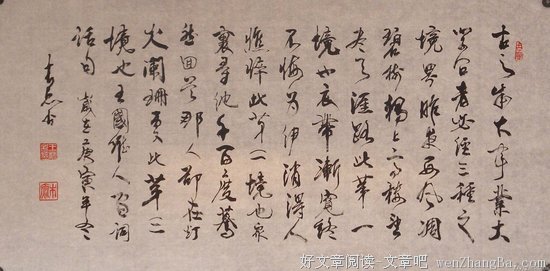 古之成大事業大
學问者必经三種之
境界昨夜西风凋
碧樹獨上高楼望
尽天涯路此第一
境也衣带漸宽终
不悔为伊消得人
憔悴此第二境也衆
裏尋他千百度驀
然回首那人却在灯
火阑珊处此第三
境也王國维人间词
话句 岁在庚寅年冬
好文章阅读-文章吧 wenZhangBa.com